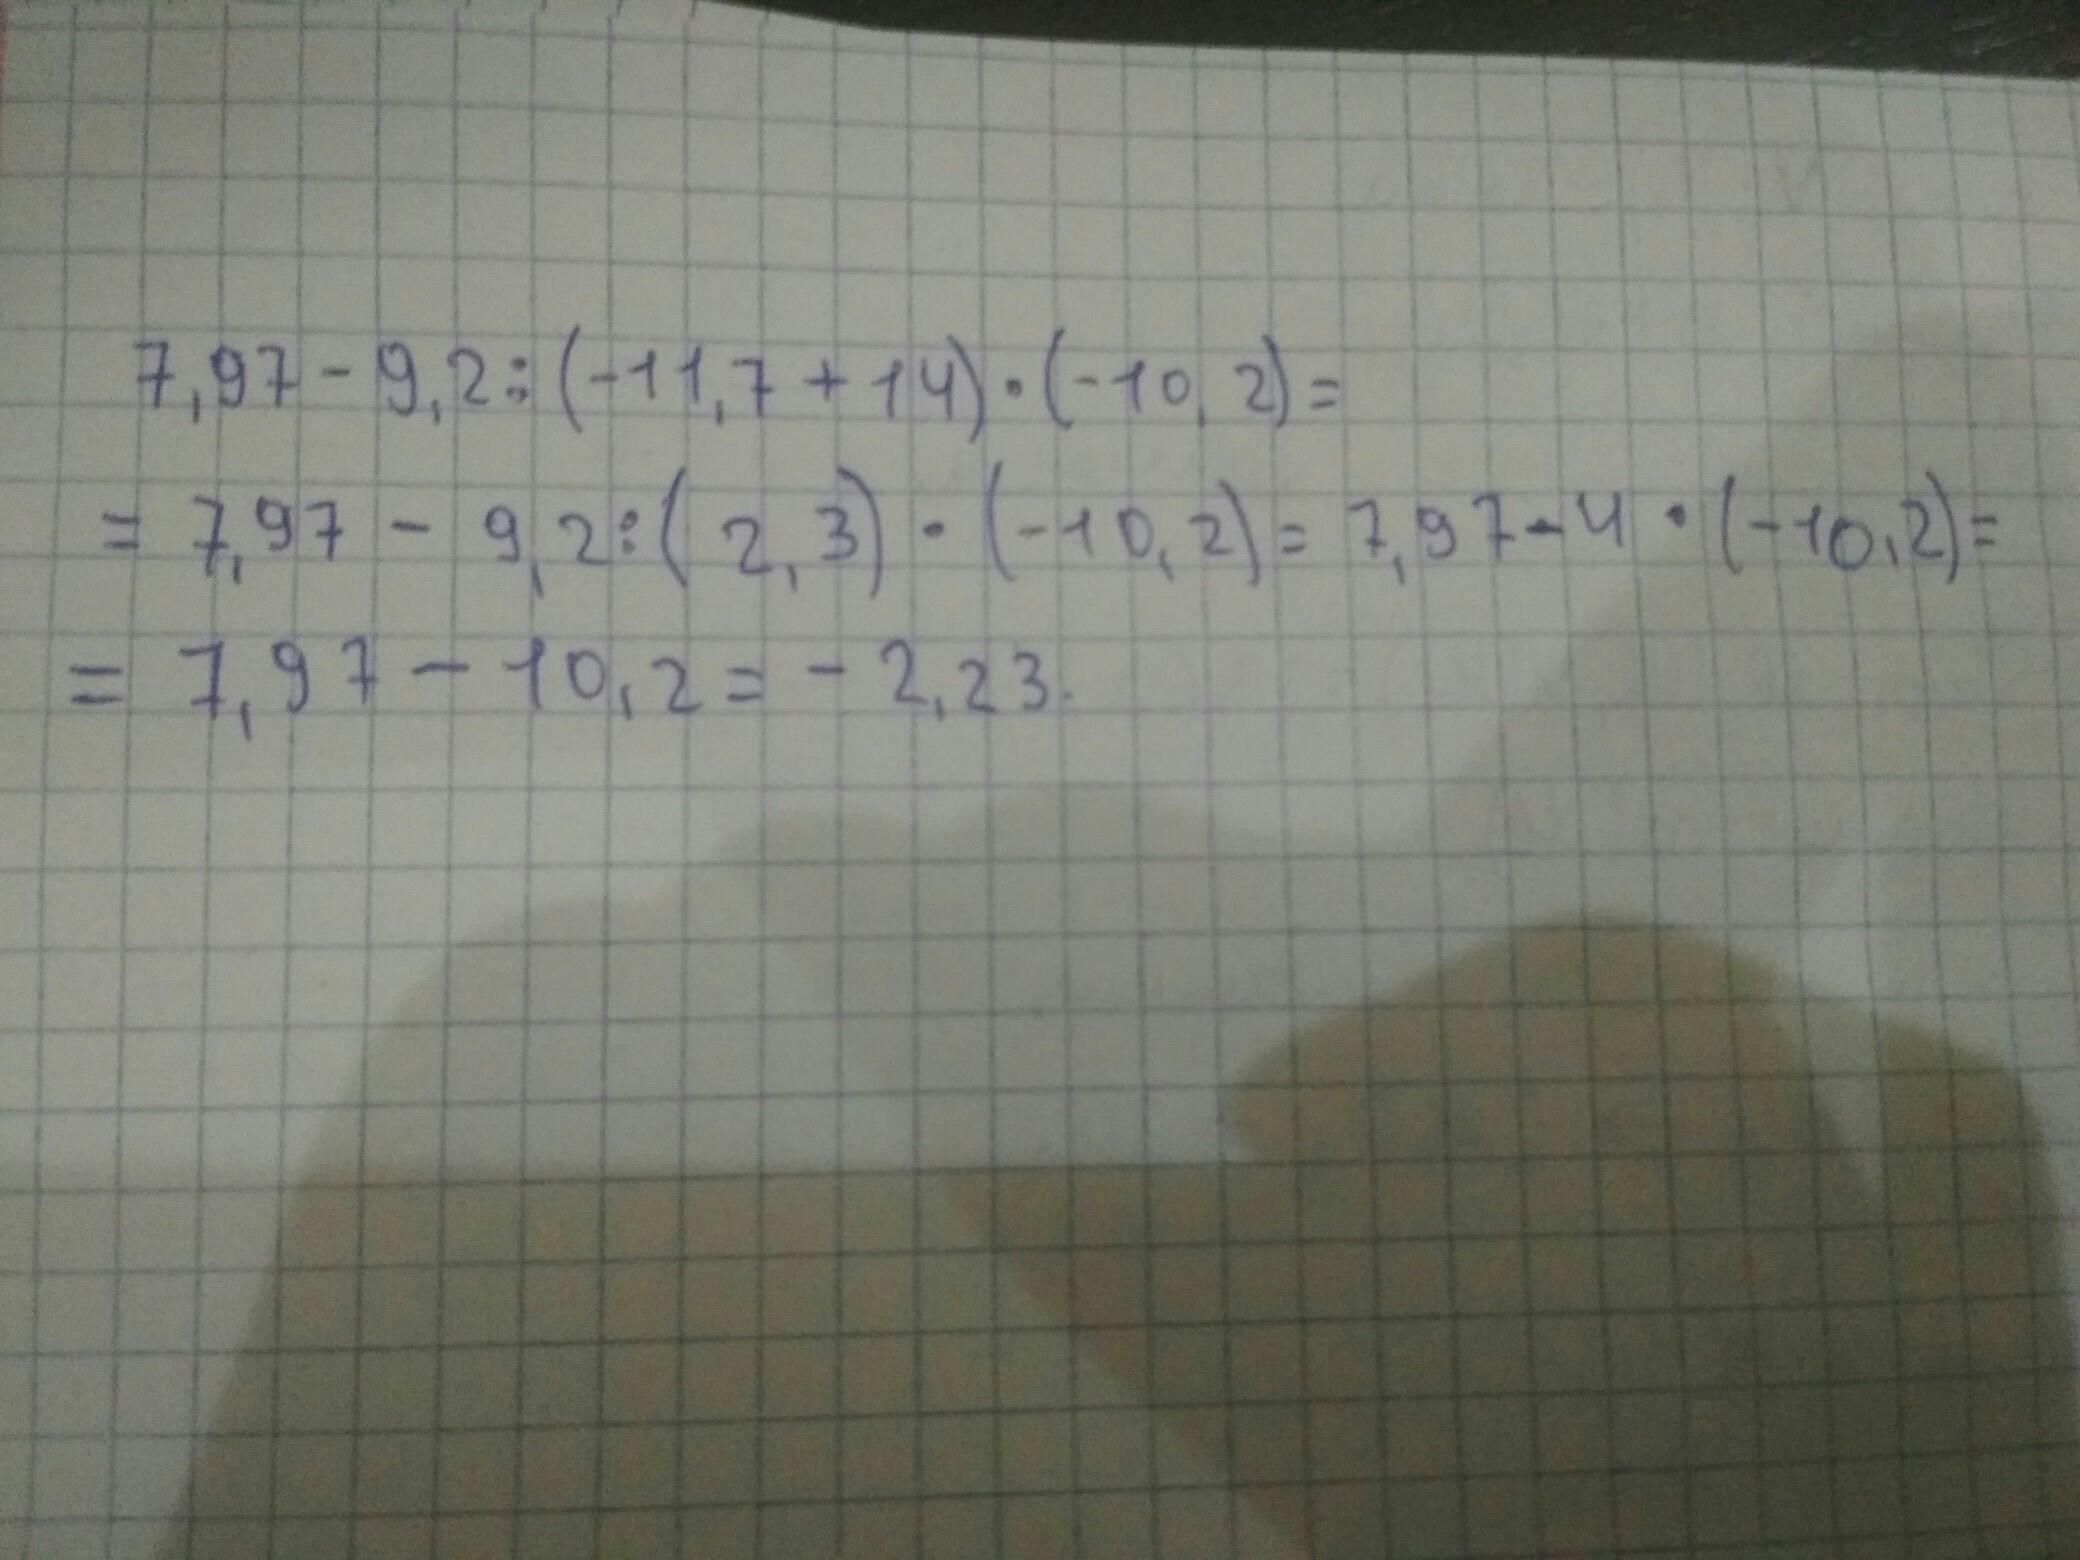 7,97 - 9,2 : (-11,7 + 14) · (-10,2) =
= 7,97 - 9,2 : ( 2,3) · (-10,2) = 7,97 - 4 · (-10,2) =
= 7,97 - 10,2 = - 2,23.